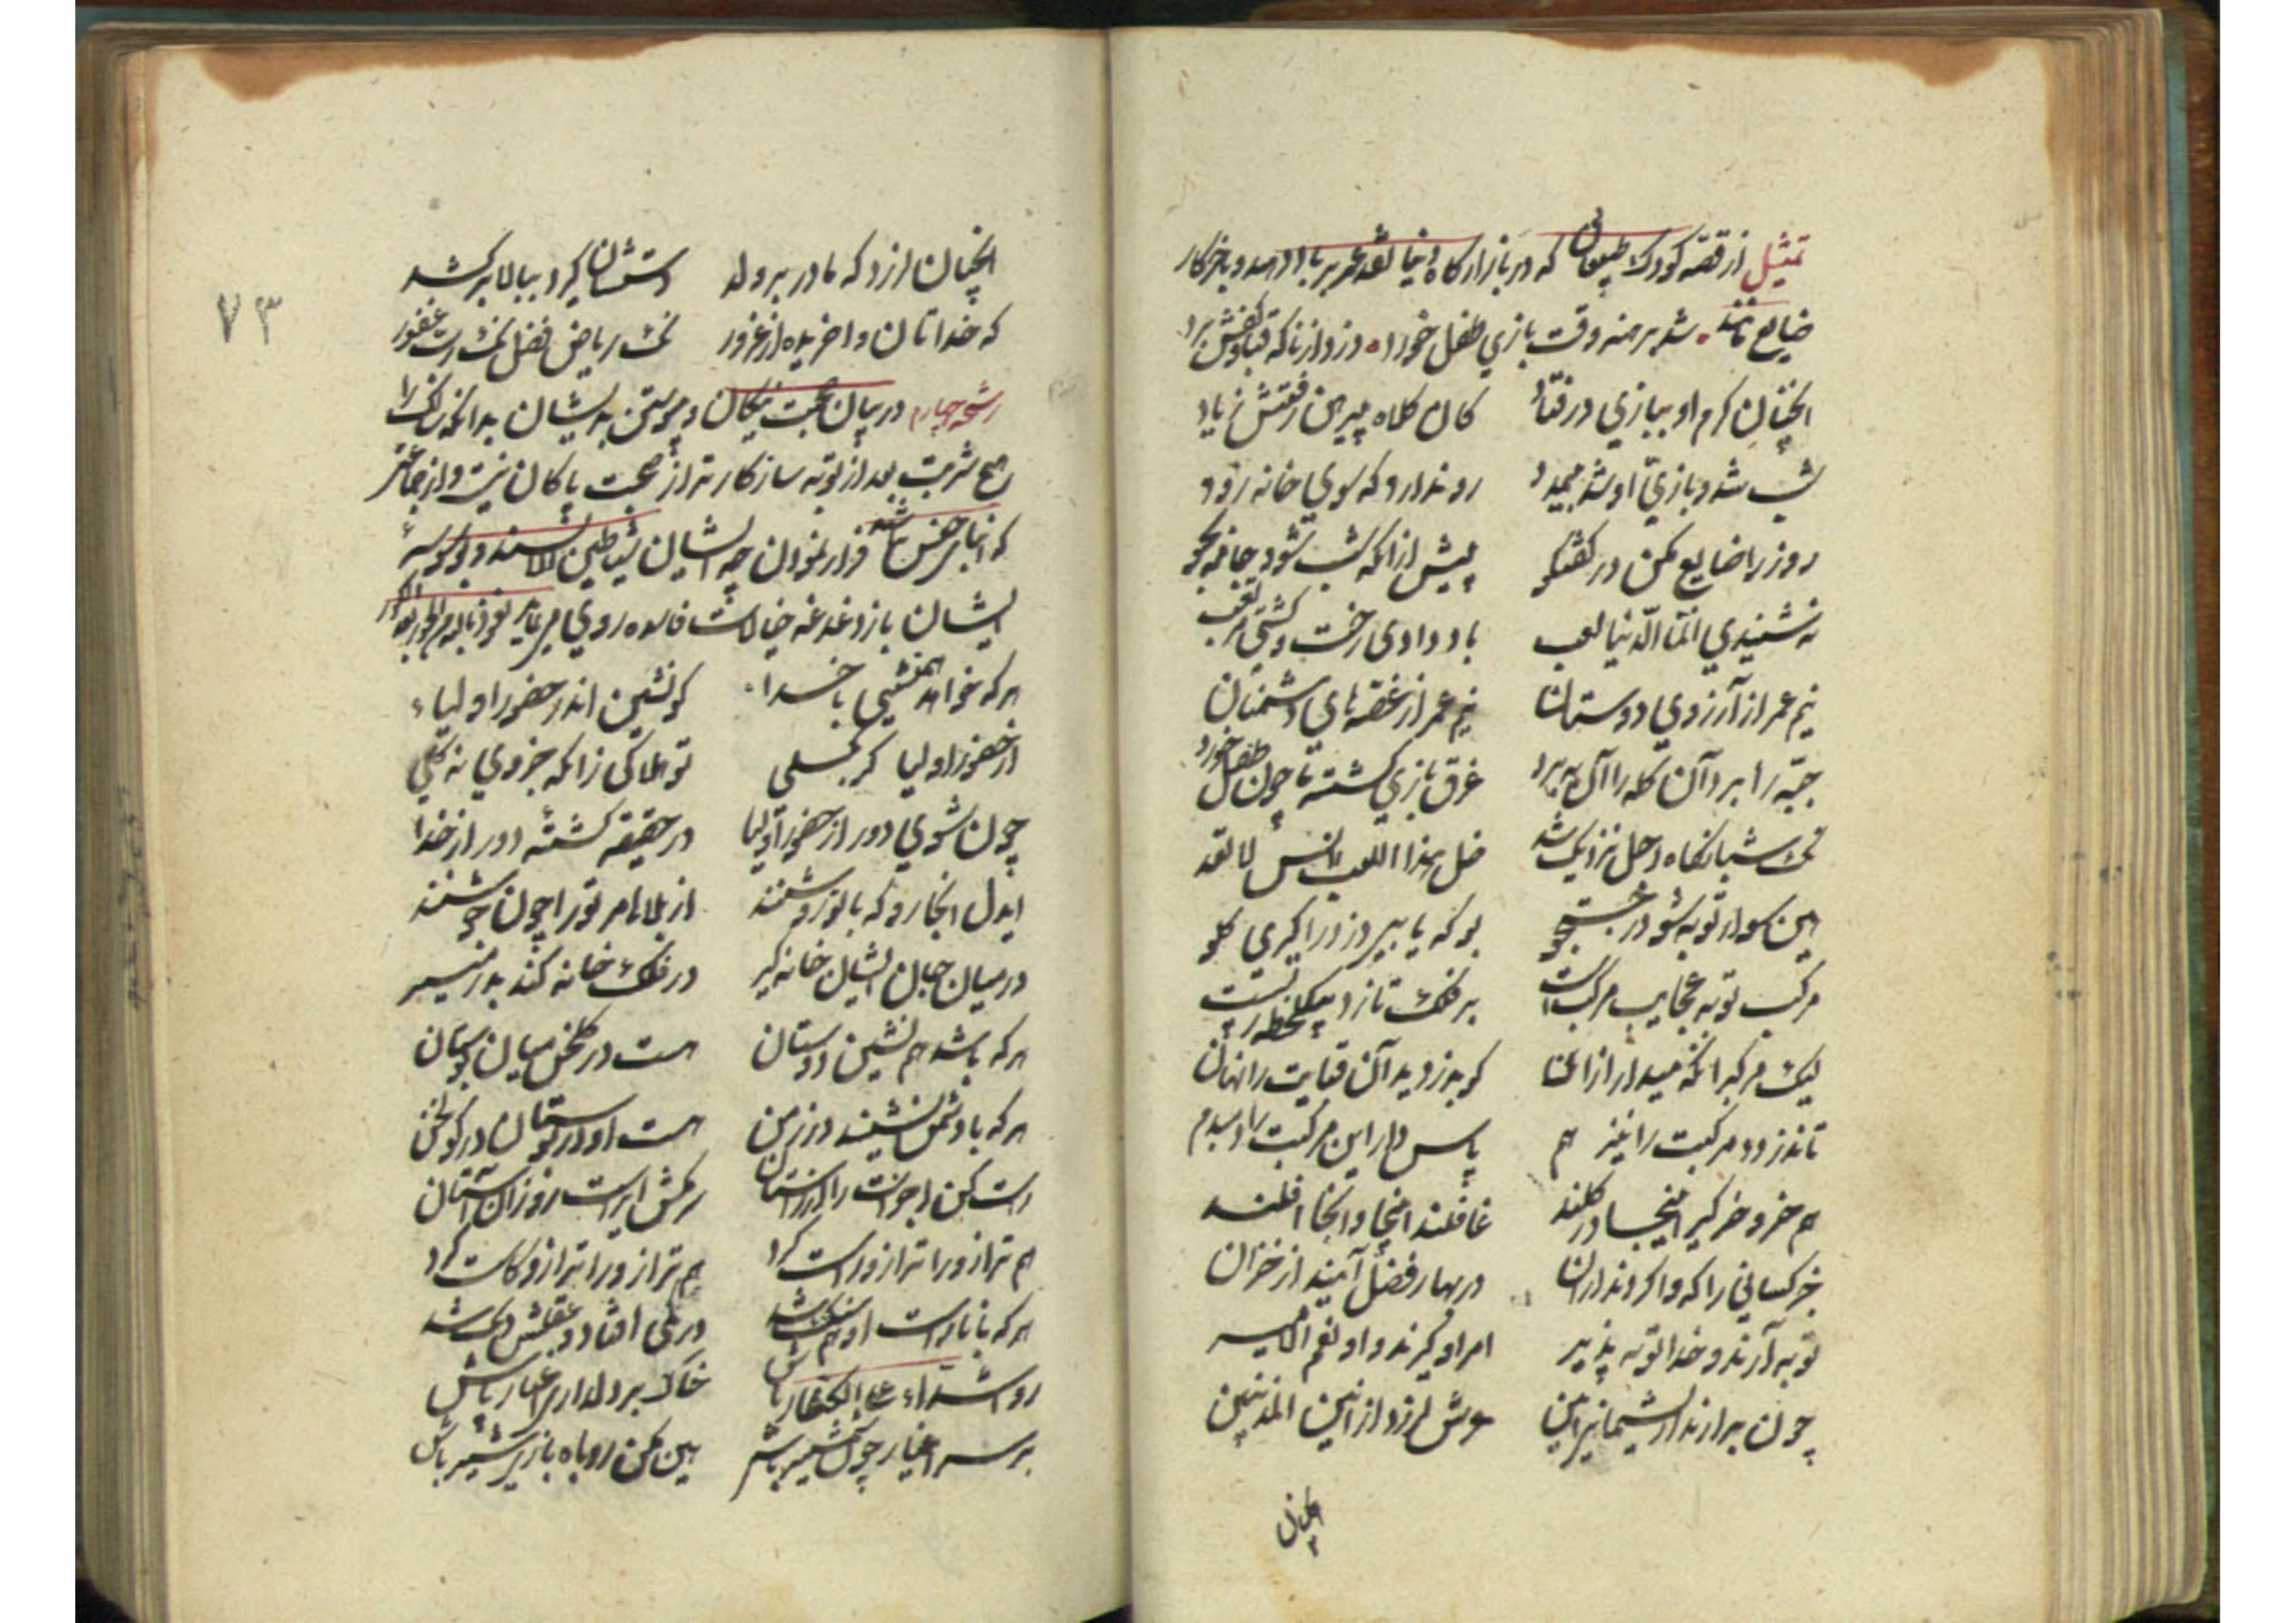 تمثیل از قصه کودک طبعانی که در بازارگاه دنیا نقد عمر بر باد دهند و بآخر کار
ضایع مانند شد برهنه وقت بازی طفل خورد دزد از ناگه قبا و کفش برد
آنچنان گرم او ببازی در فتاد کان کلاه پیرهن رفتش ز یاد
شب شد و بازی او شد بیمدد رو ندارد که سوی خانه رود
روز را ضایع مکن در گفتگو پیش ازانکه شب شود جامه بجو
نه شنیدی انما الدنیا لعب باد دادی رخت و گشتی مرتعب
نیم عمر از آرزوی دوستان نیم عمر از غصه های دشمنان
جبه را برد آن کله را آن ببرد غرق بازی گشته ما چون طفل خورد
نک شبانگاه اجل نزدیک شد خل هذا اللعب بس لا تعد
هین سوار توبه شو در جستجو بو که یابی دزد را گیری گلو
مرکب توبه عجایب مرکب است بر فلک تازد بیکلحظه ز پست
لیک مرکب را نگه میدار ازان کو بدزدید آن قبایت را نهان
تا ندزدد مرکبت را نیز هم پاس دار این مرکبت را دمبدم
هم خر و خر گیر اینجا در گلند غافلند اینجا و آنجا آفلند
جز کسانی را که وا گردند ازان در بهار فضل آیند از خزان
توبه آرند و خدا توبه پذیر امر او گیرند و او نعم الامیر
چون برارند از پشیمانی انین عرش لرزد از انین المذنبین
آنچنان
آنچنان لرزد که مادر بر ولد دستشان گیرد ببالا بر کشد
که خداتان واخریده از غرور نک ریاض فضل نک رب غفور
رشحه چهارم در بیان صحبت نیکان و پیوستن بدیشان بدانکه
شربت بعد از توبه سازگارتر از صحبت پاکان نیست و از جماعتی
که فرار نمودن چه ایشان شیاطین الانسند و بوسوسه
ایشان باز دغدغه خیالات فاسده روی نعوذ بالله من الحور بعد الکور
هر که خواهد همنشینی با خدا گو نشین اندر حضور اولیاء
از حضور اولیا گر بگسلی تو هلاکی زانکه جزوی نه کلی
چون شوی دور از حضور اولیا در حقیقت گشته دور از خدا
ایدل آنجا رو که با تو روشنند از بلاها مر تو را چون جوشنند
در میان جان ایشان خانه گیر در فلک خانه کند بدر منیر
هر که باشد هم نشین دوستان هست در گلخن میان بوستان
هر که با دشمن نشیند در زمن هست او در بوستان در گولخن
راست کن اجزات را از راستان سر مکش ای راست رو زان آستان
هم ترازو را ترازو راست کرد هم ترازو را ترازو کاست کرد
هر که با ناراست او هم سنگ شد در کمی افتاد و عقلش دنگ شد
رو اشداء علی الکفار باش خاک بر دلداری اغیار پاش
بر سر اغیار چون شمشیر باش هین مکن روباه بازی شیر باش
۷۳